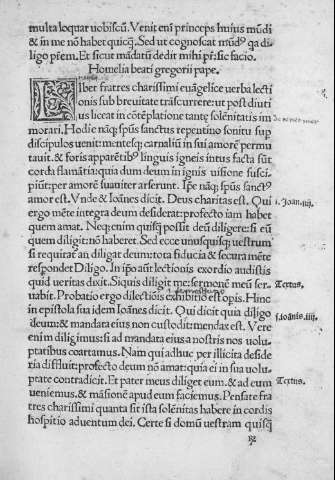 multa loquar uobiscũ. Venit em̃ princeps huius mũdi
& in me nõ habet quicq̃. Sed ut cognoscat mũdꝰ qa di-
ligo pr̃em. Et sicut mãdatũ dedit mihi pr̃: sic facio.
Homelia beati gregorii pape.
Liber fratres charissimi euãgelice uerba lecti
onis sub breuitate trãscurrere: ut post diuti
us liceat in cõtẽplatione tantę solẽnitatis im
morari. Hodie nãq; spũs sanctus repentino sonitu sup
discipulos uenit: mentesq; carnaliũ in sui amorẽ permu
tauit. & foris apparẽtibꝰ linguis igneis intus facta sũt
corda flamãtia: quia dum deum in ignis uisione susci-
piũt: per amorẽ suauiter arserunt. Ipe nãq; spũs sanctꝰ
amor est. Vnde & Ioãnes dicit. Deus charitas est. Qui
ergo mẽte integra deum desiderat: profecto iam habet
quem amat. Neq; enim quisq̃ possit deũ diligere: si eũ
quem diligit: nõ haberet. Sed ecce unusquisq; uestrum
si requirat̃ an diligat deum: tota fiducia & secura mẽte
respondet Diligo. In ipo aũt lectionis exordio audistis
quid ueritas dixit. Siquis diligit me: sermonẽ meũ ser-
uabit. Probatio ergo dilectiõis exhibitio est opis. Hinc
in epistola sua idem Ioãnes dicit. Qui dicit quia diligo
deum: & mandata eius non custodit: mendax est. Vere
enim diligimus: si ad mandata eius a nostris nos uolu-
ptatibus coartamus. Nam qui adhuc per illicita deside
ria diffluit: profecto deum nõ amat: quia ei in sua uolu-
ptate contradicit. Et pater meus diliget eum. & ad eum
ueniemus. & mãsionẽ apud eum faciemus. Pensate fra
tres charissimi quanta sit ista solẽnitas habere in cordis
hospitio aduentum dei. Certe si domũ uestram quisq̃
i. Joan. iiij.
Textus.
j. Ioãnis. iiij
Textus.